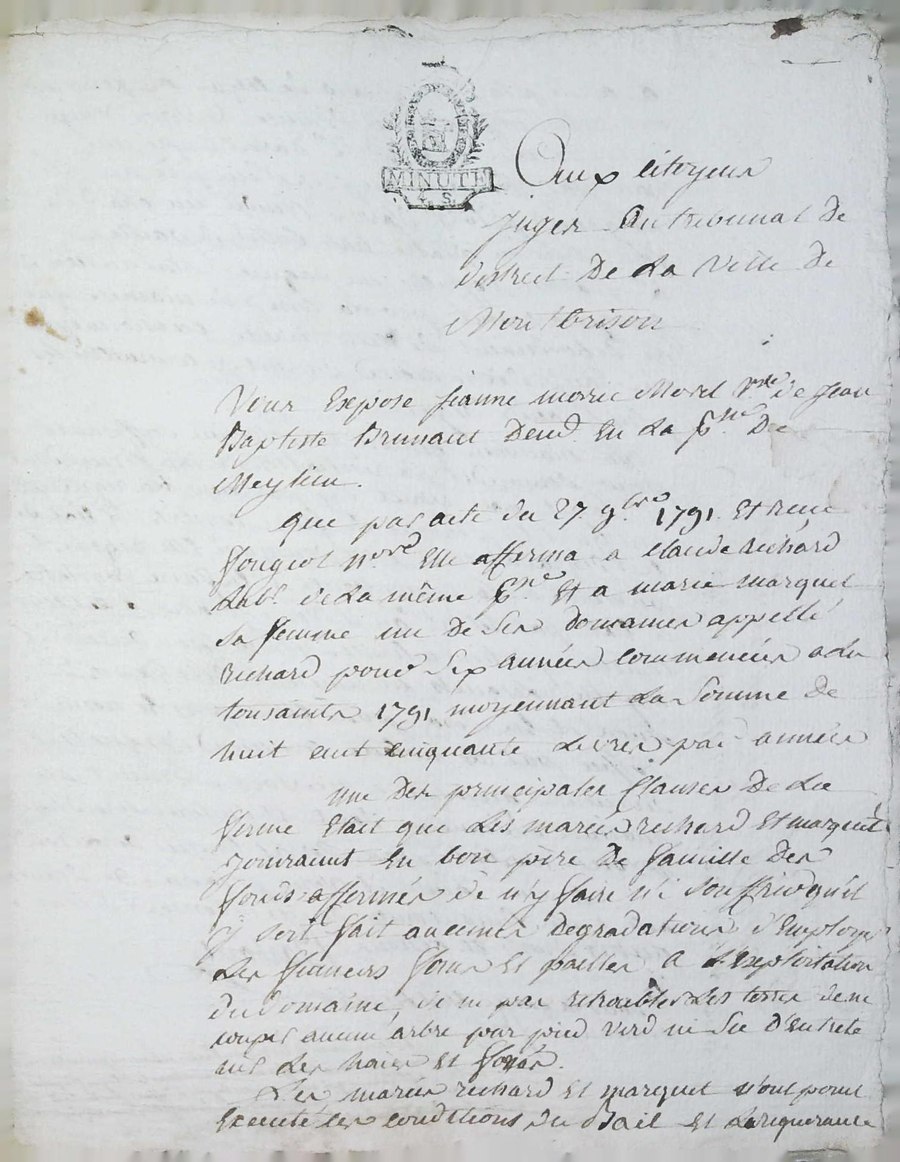 MINUTE
4. S.
Aux citoyens
juges Au tribunal De
district De La Ville De
Montbrison
Vous Expose jeanne marie Morel Vve De Jean
Baptiste Brunaut Demt En La psse De
Meylieu.
que par acte du 27 9bre 1791 Et Reçu
fougerol nore Elle afferma a claude richard
Labr De La même psse Et a marie marquet
sa femme un De Ses domaines appellé
Richard pour Six années commencées a La
tousaints 1791 moyennant La Somme De
huit cent cinquante Livres par année
une Des principales Clauses De La
ferme Etait que Les mariés richard Et marquet
jouiraient En bon père De famille Des
fonds affermés De n'y faire n'i Souffrir qu'il
y soit fait aucunes Degradations, d'Employer
Les fumiers foins Et pailles A L'Exploitation
du Domaine, de ne pas retroubler Les terres de ne
couper aucun arbre par pied verd ni Sec D'Entrete
nir Les haies Et fossés.
Les mariés richard Et marquet n'ont point
Executé Les conditions Du Bail Et La requerante